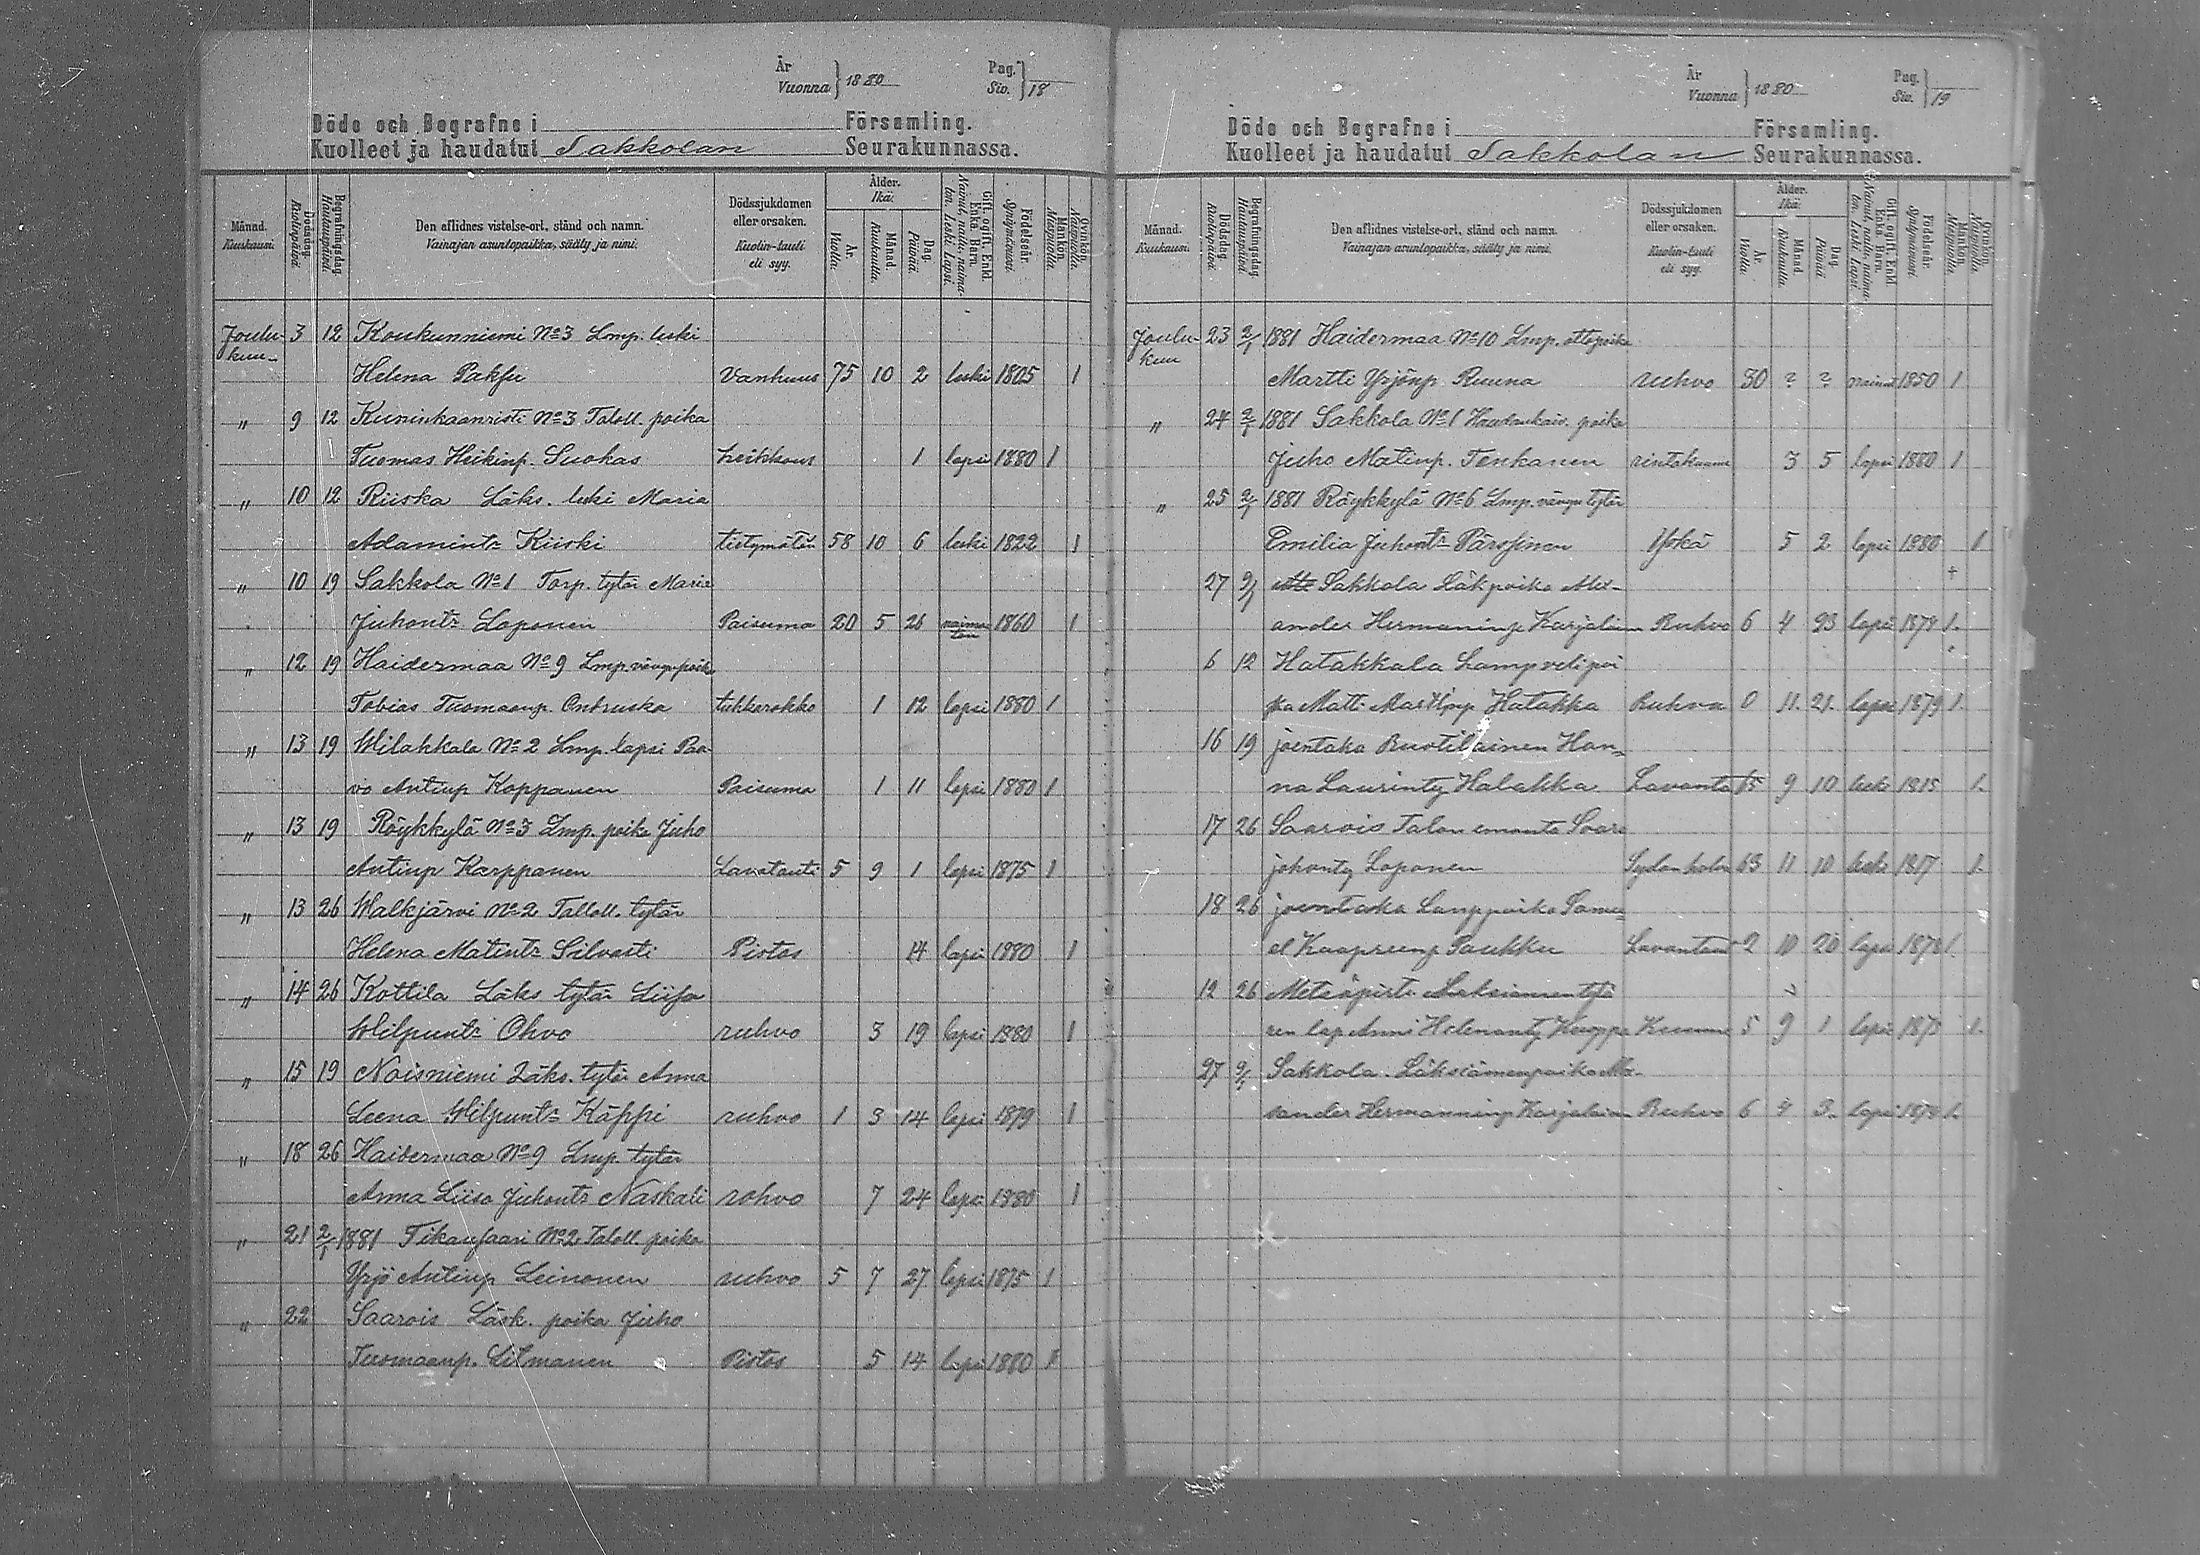 År
Vuonna } 1880
Pag.
Siv. } 18
Döde och Begrafne i Församling.
Kuolleet ja haudatut Sakkolan Seurakunnassa.
Månad.
Kuukausi.
Dödsdag.
Kuolinpäivä.
Begrafningsdag.
Hautauspäivä.
Den aflidnes vistelse-ort, stånd och namn.
Vainajan asuntopaikka, sääty ja nimi.
Dödssjukdomen
eller orsaken.
Kuolin-tauti
eli syy.
Ålder.
Ikä.
År.
Vuotta.
Månad.
Kuukautta.
Dag.
Päivää.
Gift, ogift, Enkl.
Enka, Barn.
Nainut, naitu, naima-
ton, Leski, Lapsi.
Födelseår.
Syntymävuosi.
Mankön.
Miespuolia.
Qvinkön.
Naispuolia.
Joulu- 3 12 Koukunniemi No 3 Lmp. leski
kuu-
Helena Pakfu Vanhuus 75 10 2 leski 1805 1
" 9 12 Kuninkaanristi No 3 Taloll. poika
Tuomas Heikinp. Suokas heikkous 1 lapsi 1880 1
" 10 12 Riiska Läks. leski Maria
Adamintr Kiiski tietymätön 58 10 6 leski 1822 1
" 10 19 Sakkola No 1 Torp. tytär Maria
Juhontr Loponen Paisuma 20 5 26 naima- 1860 1
ton
" 12 19 Haidermaa No 9 Lmp. vävyn poika
Tobias Tuomaanp. Ontruska tuhkarokko 1 12 lapsi 1880 1
" 13 19 Wilakkala No 2 Lmp. lapsi Paa-
vo Antinp Koppanen Paisuma 1 11 lapsi 1880 1
" 13 19 Röykkylä No 3 Lmp. poika Juho
Antinp Karppanen Lavatauti 5 9 1 lapsi 1875 1
" 13 26 Walkjärvi No 2 Talloll. tytär
Helena Matintr Silvasti Pistos 14 lapsi 1880 1
" 14 26 Kottila Läks tytär Liisa
Wilpuntr Ohvo ruhvo 3 19 lapsi 1880 1
" 15 19 Noisniemi Läks. tytär Anna
Leena Wilpuntr Käppi ruhvo 1 3 14 lapsi 1879 1
" 18 26 Haidermaa No 9 Lmp. tytär
Anna Liisa Juhontr Naskali rohvo 7 24 lapsi 1880 1
" 21 2/1 1881 Tikansaari No 2 Taloll. poika
Yrjö Antinp Leinonen ruhvo 5 7 27 lapsi 1875 1
" 22 Saarois Läsk. poika Juho
Tuomaanp. Litmanen Pistos 5 14 lapsi 1880 1
År
Vuonna } 1880
Pag.
Siv. } 19
Döde och Begrafne i Församling.
Kuolleet ja haudatut Sakkolan Seurakunnassa.
Månad.
Kuukausi.
Dödsdag.
Kuolinpäivä.
Begrafningsdag.
Hautauspäivä.
Den aflidnes vistelse-ort, stånd och namn.
Vainajan asuntopaikka, sääty ja nimi.
Dödssjukdomen
eller orsaken.
Kuolin-tauti
eli syy.
Ålder.
Ikä.
År.
Vuotta.
Månad.
Kuukautta.
Dag.
Päivää.
Gift, ogift, Enkl.
Enka, Barn.
Nainut, naitu, naima-
ton, Leski, Lapsi.
Födelseår.
Syntymävuosi.
Mankön.
Miespuolia.
Qvinkön.
Naispuolia.
Joulu- 23 2/1 1881 Haidermaa No 10 Lmp. ottopoika
kuu
Martti Yrjönp. Ruuna ruhvo 30 ? ? nainut 1850 1
" 24 2/1 1881 Sakkola No 1 Haudankaiv. poika
Juho Matinp. Tenkanen rintakuume 3 5 lapsi 1880 1
" 25 2/1 1881 Röykkylä No 6 Lmp. vävyn tytär
Emilia Juhontr Pärssinen Yskä 5 2 lapsi 1880 1
27 2/1 Sakkola Läkpoika Alex-
ander Hermaninp Karjalain Ruhvo 6 4 23 lapsi 1874 1.
6 12 Hatakkala Lampvetipoi
ka Matti Martinp Hatakka Ruhvo 0 11. 21. lapsi 1879 1.
16 19 joentaka Ruotilainen Han-
na Laurinty Halakka Lavanta 65 9 10 leski 1815 1.
17 26 Saarois Talon emanta Saara
johonty Loponen Sydan 63 11 10 leski 1817 1.
18 26 joentaka Lamppoika Samu-
el Kaaprinp Paukku Lavantau 2 10 20 lapsi 1878 1.
12 26 Metsäpirti
ren lap Anni Helenanty Kuoppa Kuume 5 9 1 lapsi 1875 1.
27 2/1 Sakkola. Läksiämenpoika Alex-
sander Hermanninp Karjalain Ruhvo 6 4 3. lapsi 1874 1.